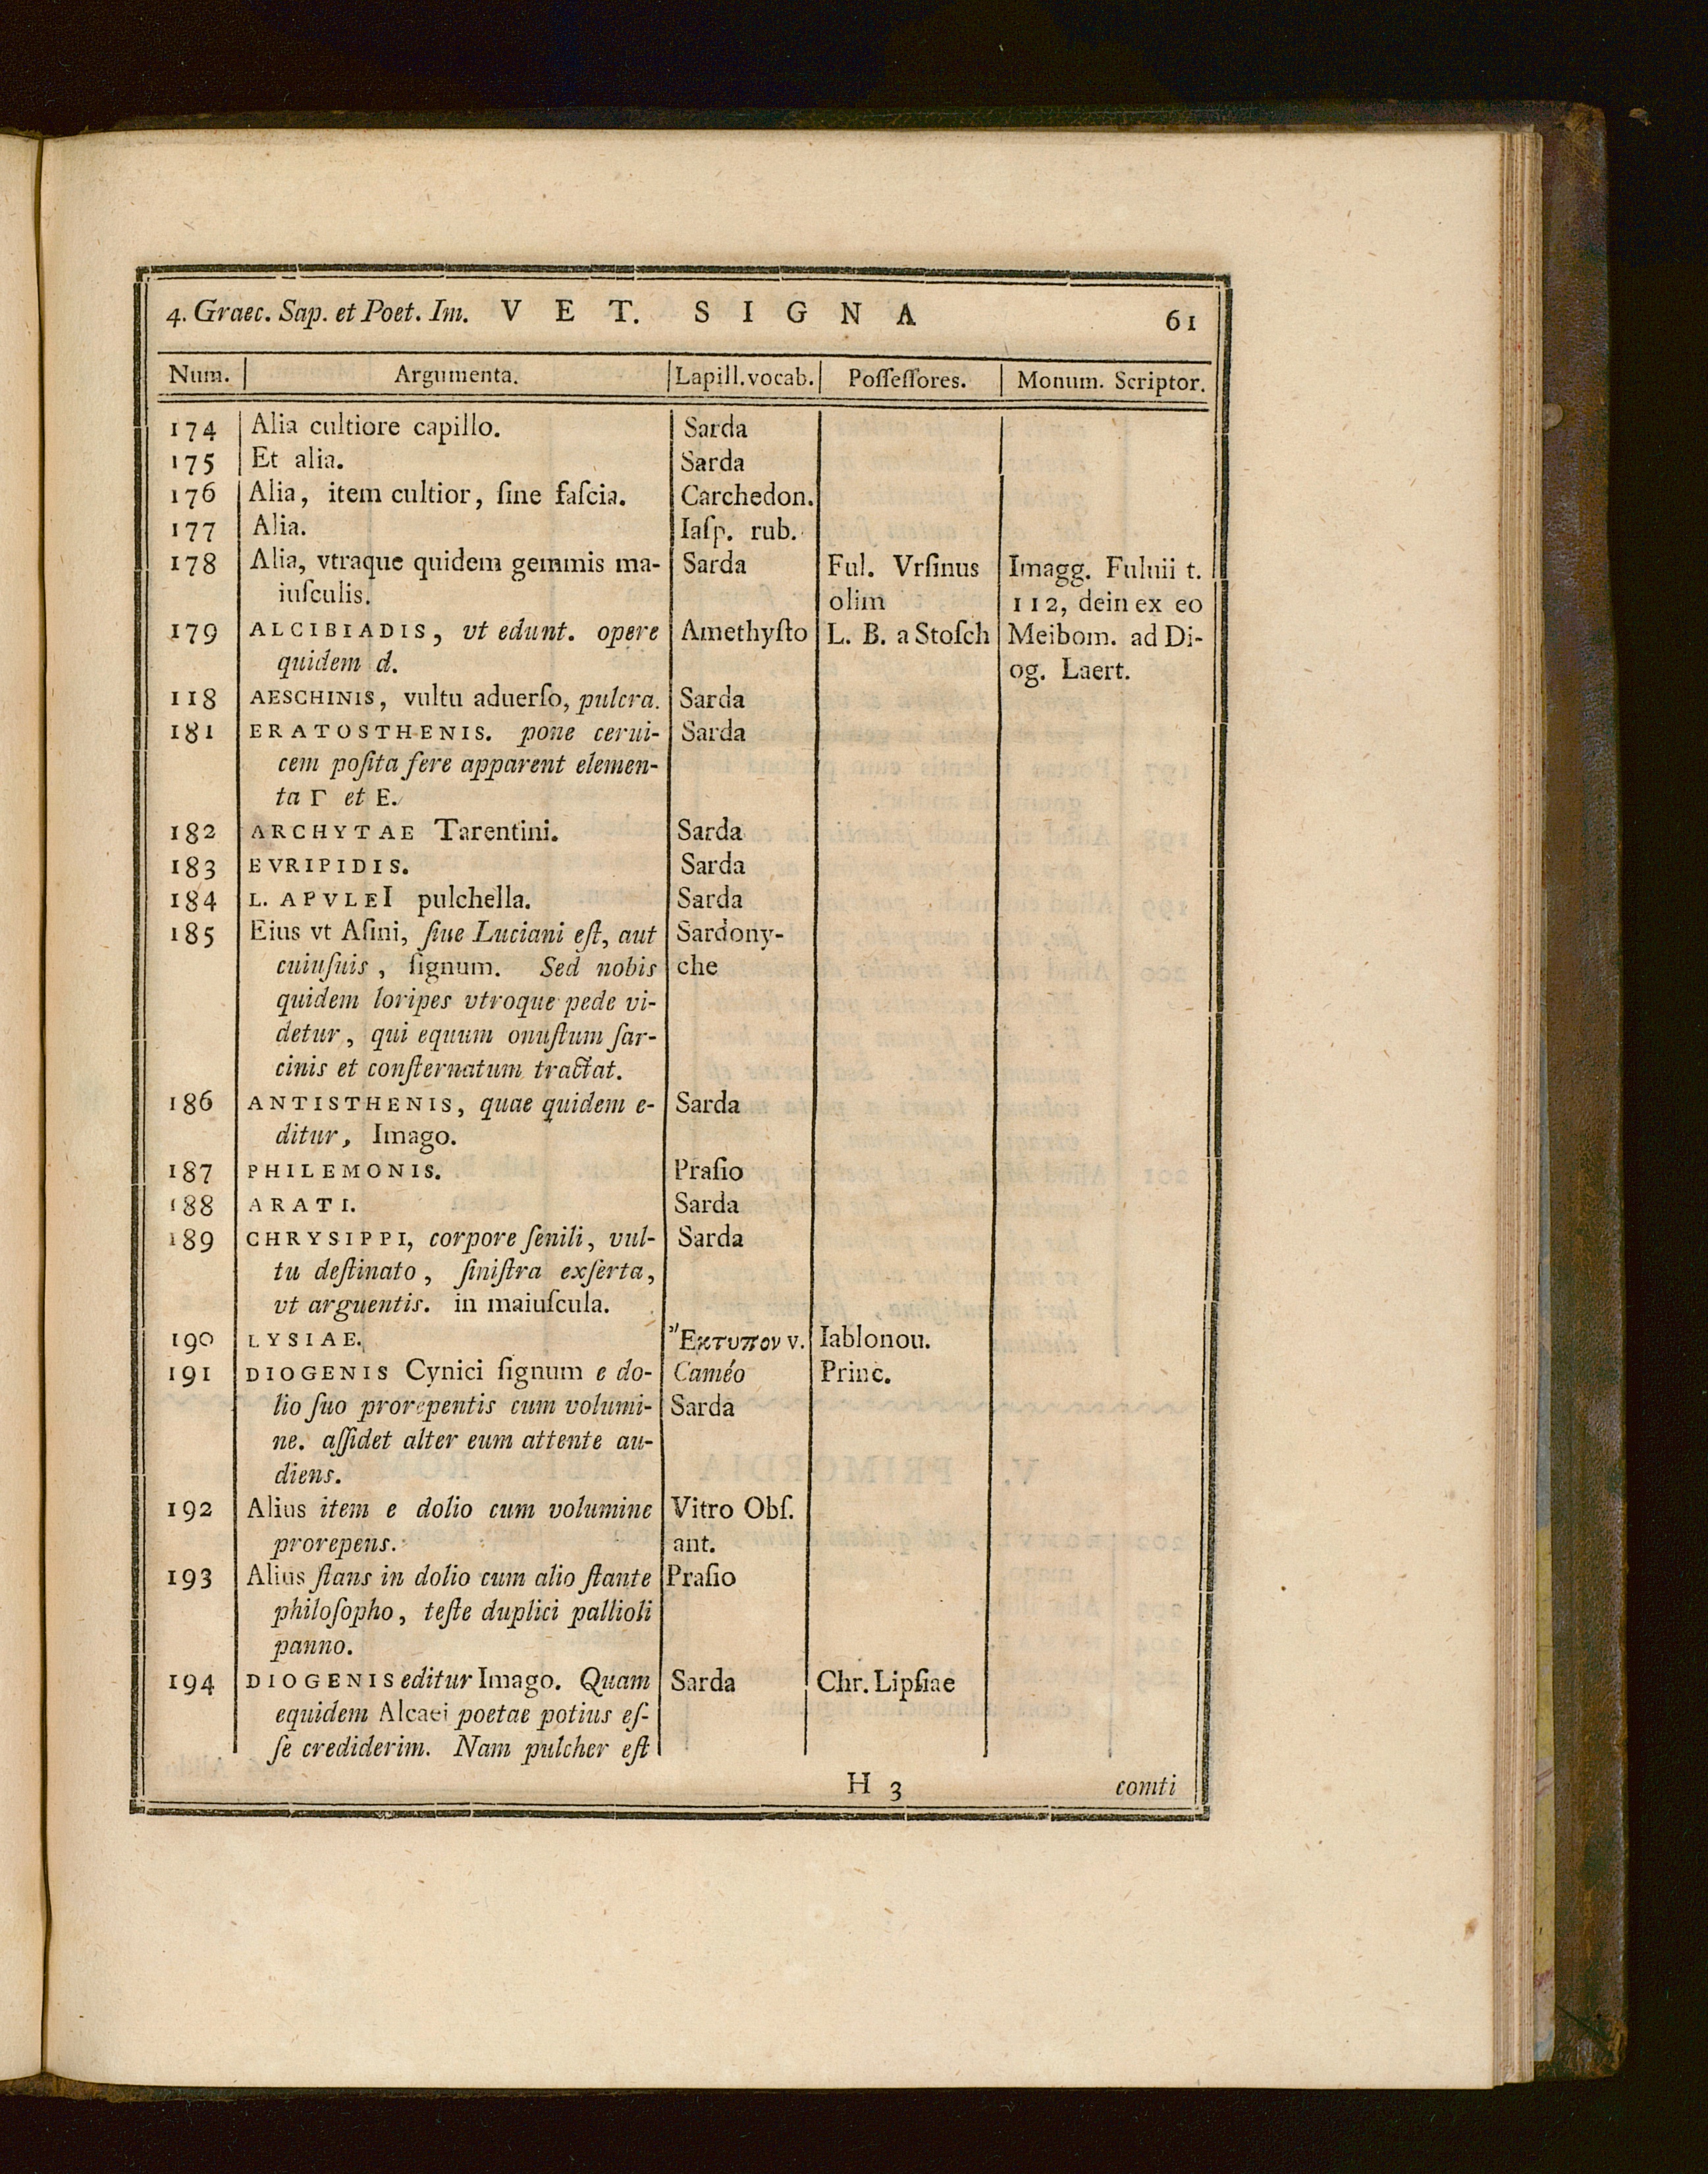 4. Graec. Sap. et Poet. Im. VET. SIGNA 61
Num. Argumenta. Lapill. vocab. Poſſeſſores. Monum. Scriptor.
174 Alia cultiore capillo. Sarda
175 Et alia. Sarda
176 Alia, item cultior, ſine faſcia. Carchedon.
177 Alia. Iaſp. rub.
178 Alia, vtraque quidem gemmis ma- Sarda Ful. Vrſinus Imagg. Fuluii t.
iuſculis. olim 112, dein ex eo
179 ALCIBIADIS, vt edunt. opere Amethyſto L. B. a Stoſch Meibom. ad Di-
quidem d. og. Laert.
118 AESCHINIS, vultu aduerſo, pulcra. Sarda
181 ERATOSTHENIS. pone cerui- Sarda
cem poſita fere apparent elemen-
ta Γ et E.
182 ARCHYTAE Tarentini. Sarda
183 EVRIPIDIS. Sarda
184 L. APVLEI pulchella. Sarda
185 Eius vt Aſini, ſiue Luciani eſt, aut Sardony-
cuiuſuis, ſignum. Sed nobis che
quidem loripes vtroque pede vi-
detur, qui equum onuſtum ſar-
cinis et conſternatum tractat.
186 ANTISTHENIS, quae quidem e- Sarda
ditur, Imago.
187 PHILEMONIS. Praſio
188 ARATI. Sarda
189 CHRYSIPPI, corpore ſenili, vul- Sarda
tu deſtinato, ſiniſtra exſerta,
vt arguentis. in maiuſcula.
190 LYSIAE. Ἔκτυπον v. Iablonou.
191 DIOGENIS Cynici ſignum e do- Caméo Princ.
lio ſuo prorepentis cum volumi- Sarda
ne. aſſidet alter eum attente au-
diens.
192 Alius item e dolio cum volumine Vitro Obſ.
prorepens. ant.
193 Alius ſtans in dolio cum alio ſtante Praſio
philoſopho, teſte duplici pallioli
panno.
194 DIOGENIS editur Imago. Quam Sarda Chr. Lipſiae
equidem Alcaei poetae potius eſ-
ſe crediderim. Nam pulcher eſt
H 3 comti